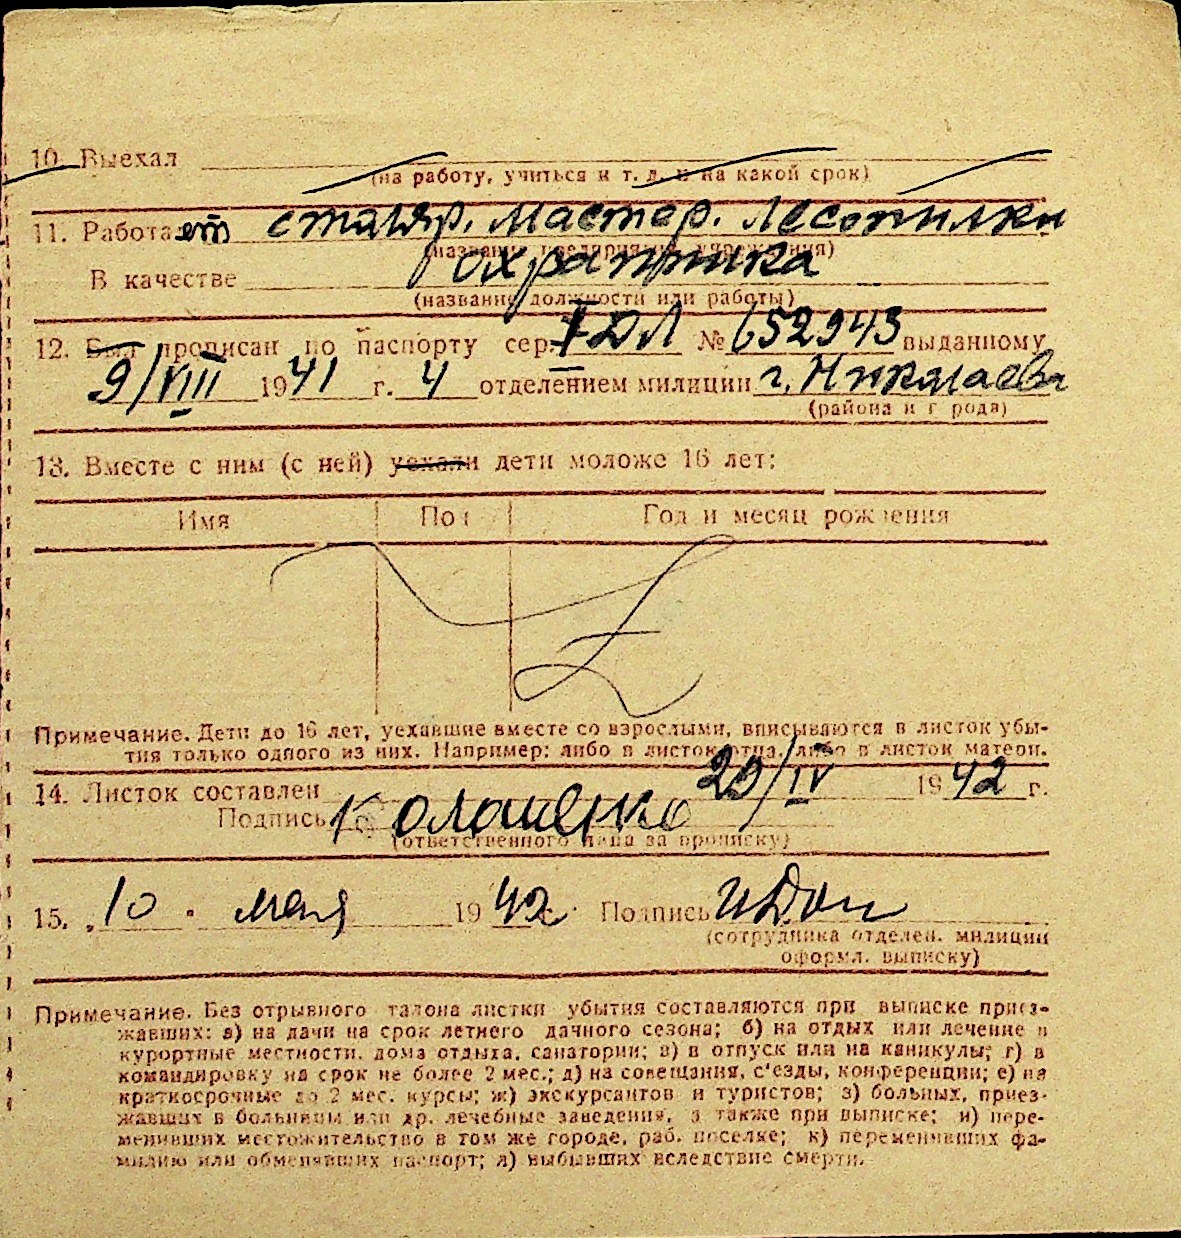 10. Выехал
(на работу, учиться и т. д. и на какой срок)
11. Работает столяр. мастер. Лесопилки
(название предприятия, учреждения)
В качестве охранника
(название должности или работы)
12. Был прописан по паспорту сер. I ДЛ № 652943 выданному
9/VIII 1941 г. 4 отделением милиции г. Николаева
(района и города)
13. Вместе с ним (с ней) уехали дети моложе 16 лет:
Имя Пол Год и месяц рождения
Примечание. Дети до 16 лет, уехавшие вместе со взрослыми, вписываются в листок убы-
тия только одного из них. Например: либо в листок отца, либо в листок матери.
14. Листок составлен 29/IV 1942 г.
Подпись
(ответственного лица за прописку)
15. „10" мая 1942 г. Подпись
(сотрудника отделен. милиции
оформл. выписку)
Примечание. Без отрывного талона листки убытия составляются при выписке приез-
жавших: а) на дачи на срок летнего дачного сезона; б) на отдых или лечение в
курортные местности, дома отдыха, санатории; в) в отпуск или на каникулы; г) в
командировку на срок не более 2 мес.; д) на совещания, с'езды, конференции; е) на
краткосрочные до 2 мес. курсы; ж) экскурсантов и туристов; з) больных, приез-
жавших в больницы или др. лечебные заведения, а также при выписке; и) пере-
менивших местожительство в том же городе, раб. поселке; к) переменивших фа-
милию или обменявших паспорт; л) выбывших вследствие смерти.